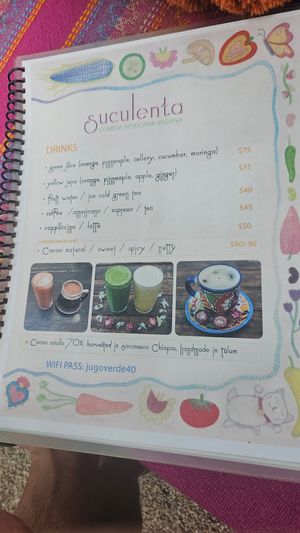 suculenta
COMIDA MEXICANA VEGANA
DRINKS
• green juice (orange, pinneaple, cellery, cucumber, moringa) $75
• yellow juice (orange, pinneaple, apple, ginger) $75
• fruit water / ice cold green tea $40
• coffee / americano / espresso / tea $45
• cappuccino / latte $50
• Cacao natural / sweet / spicy / nutty $80/90
• Cacao criollo 70%, harvested in soconusco Chiapas, handmade in Tulum
WIFI PASS: jugoverde40